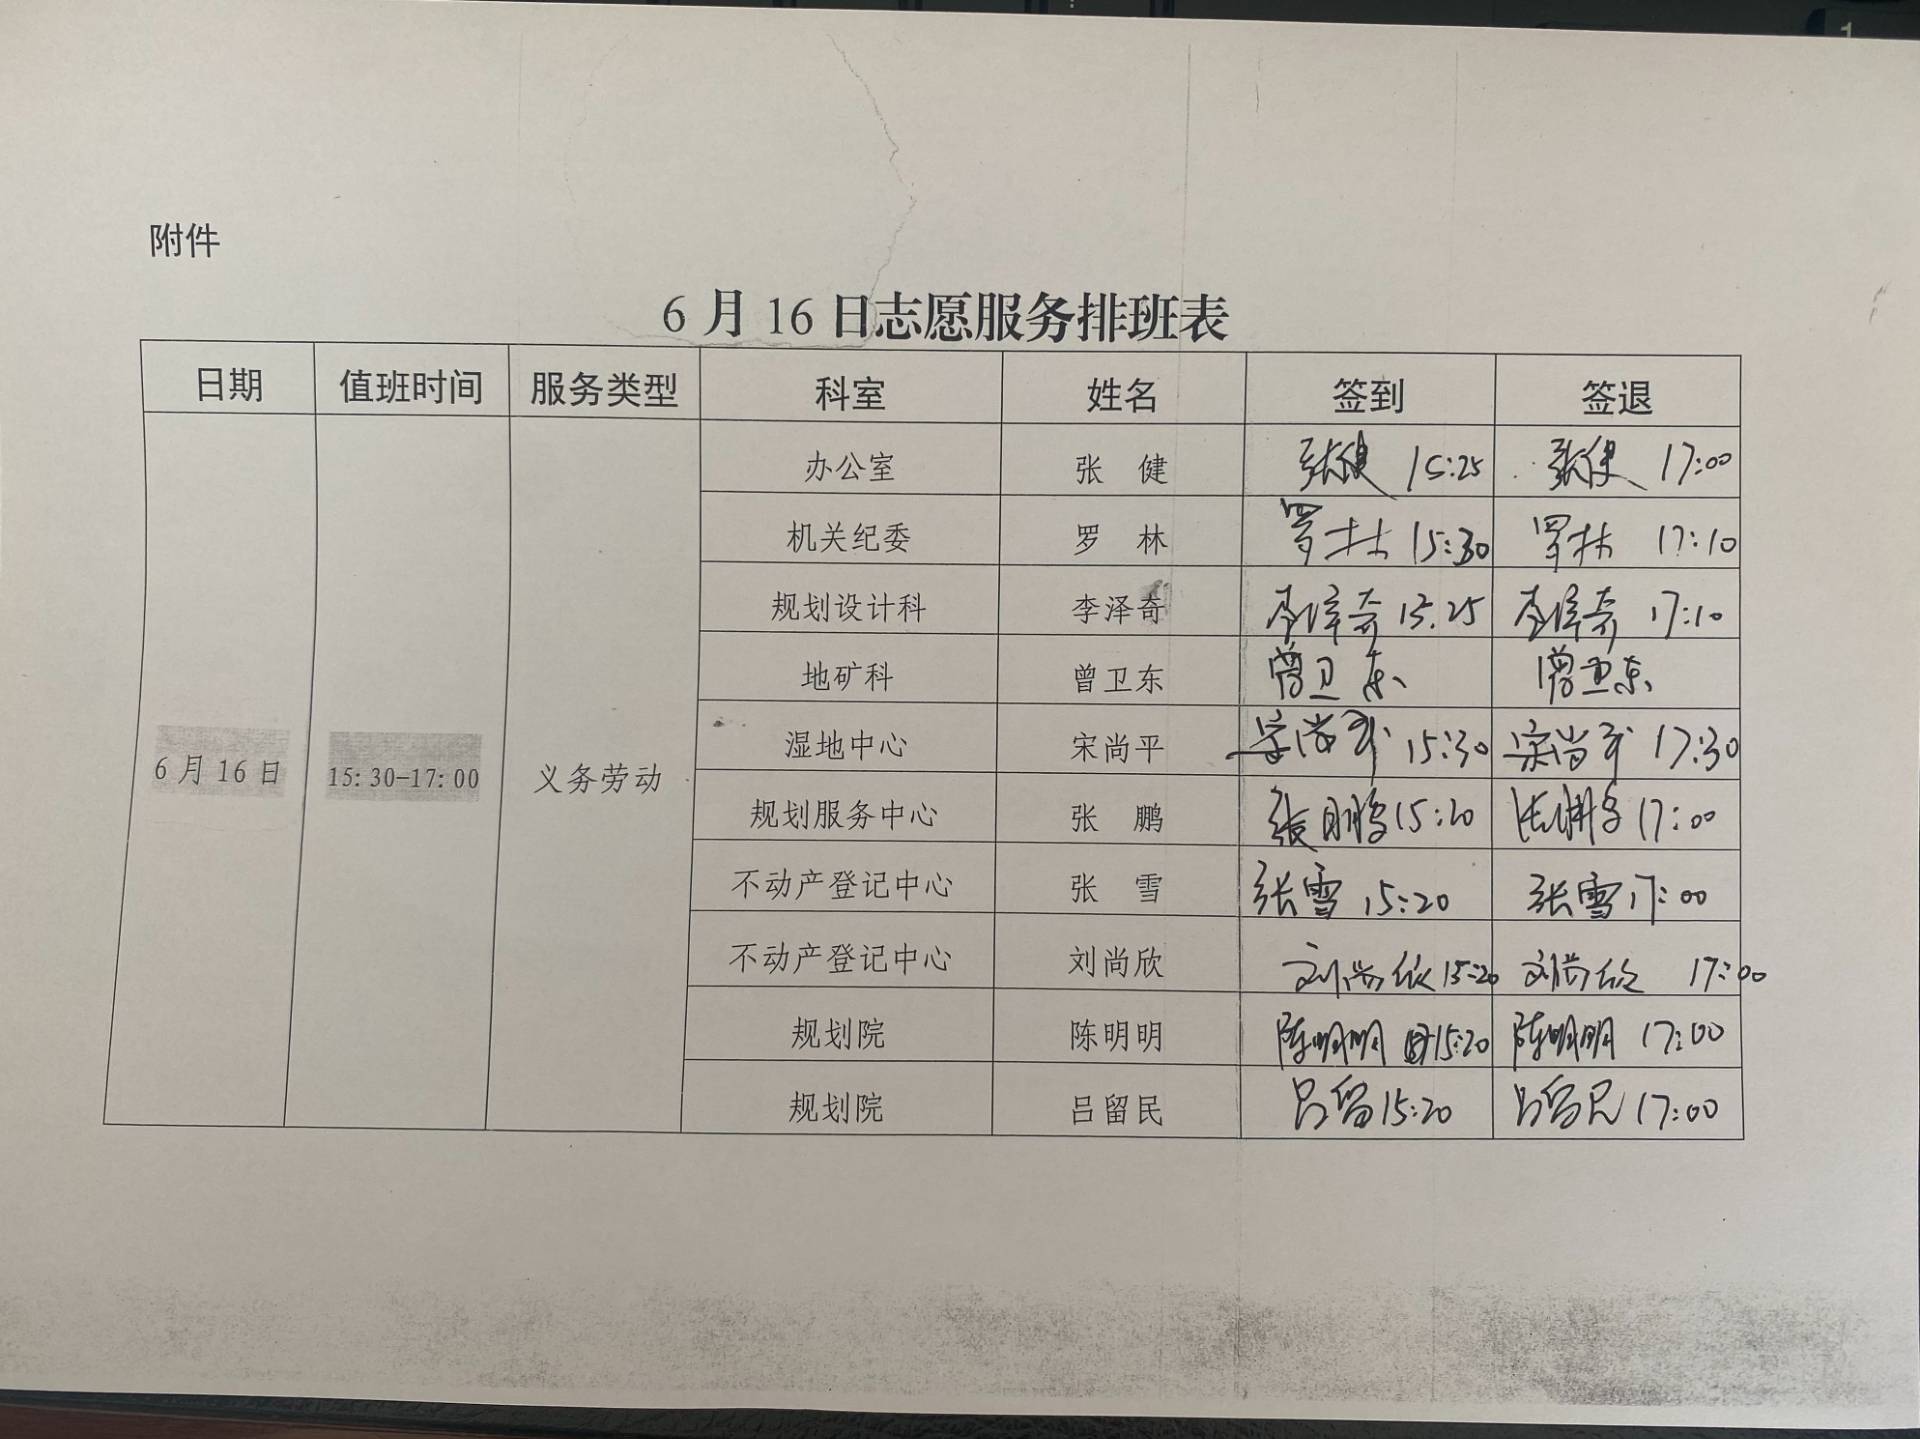 附件
6月16日志愿服务排班表
日期 值班时间 服务类型 科室 姓名 签到 签退
6月16日 15:30-17:00 义务劳动
办公室 张健 张健 15:25 张健 17:00
机关纪委 罗林 罗林 15:30 罗林 17:10
规划设计科 李泽奇 李泽奇 15.25 李泽奇 17:10
地矿科 曾卫东 曾卫东 曾卫东
湿地中心 宋尚平 宋尚平 15:30 宋尚平 17:30
规划服务中心 张鹏 张鹏 15:20 张鹏 17:00
不动产登记中心 张雪 张雪 15:20 张雪 17:00
不动产登记中心 刘尚欣 刘尚欣 15:20 刘尚欣 17:00
规划院 陈明明 陈明明 15:20 陈明明 17:00
规划院 吕留民 吕留 15:20 吕留民 17:00